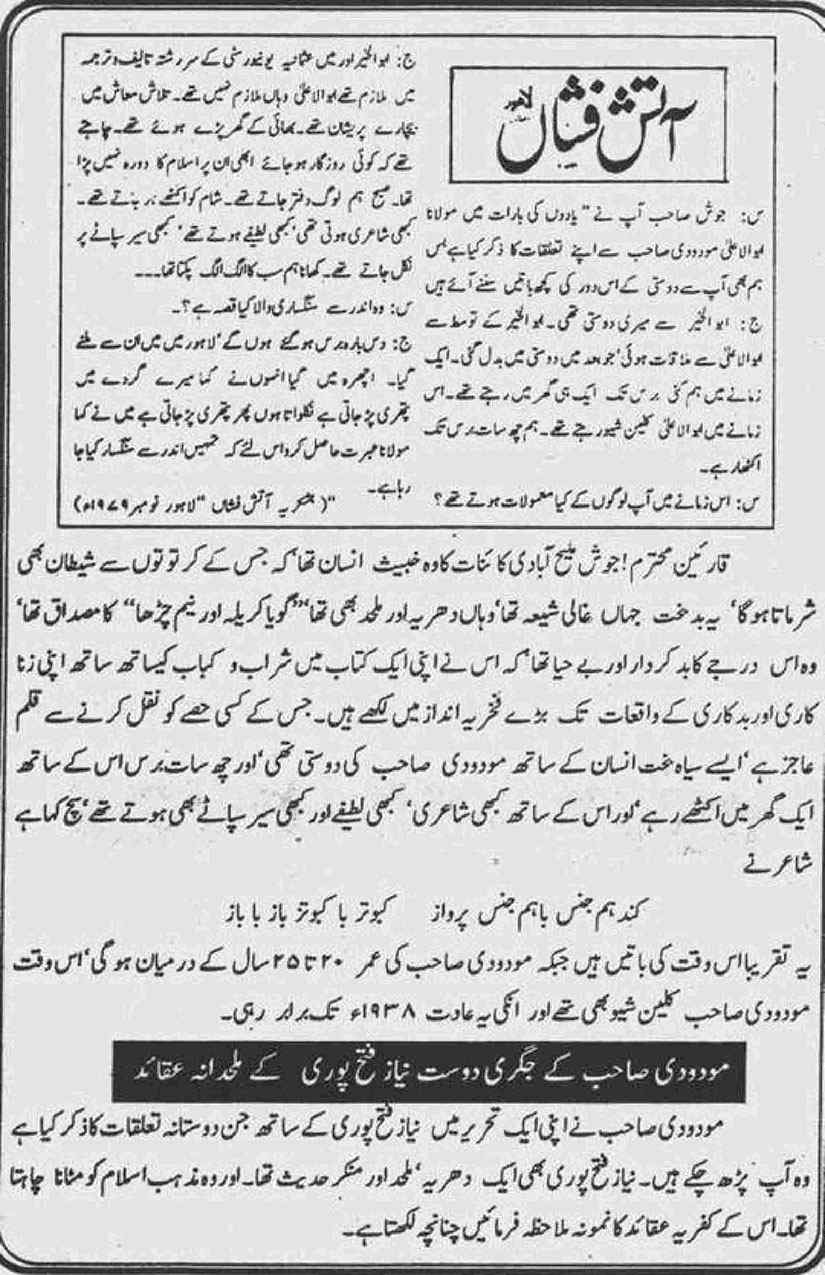 آتش فشاں لاہور
س: جوش صاحب آپ نے "یادوں کی بارات میں مولانا
ابوالاعلیٰ مودودی صاحب سے اپنے تعلقات کا ذکر کیا ہے بس
ہم بھی آپ سے دوستی کے اس دور کی کچھ باتیں سننے آئے ہیں
ج: ابوالخیر سے میری دوستی تھی۔ ابوالخیر کے توسط سے
ابوالاعلیٰ سے ملاقات ہوئی' جو بعد میں دوستی میں بدل گئی۔ ایک
زمانے میں ہم کئی برس تک ایک ہی گھر میں رہتے تھے۔ اس
زمانے میں ابوالاعلیٰ کلین شیو رہتے تھے۔ ہم چھ سات برس تک
اکٹھا رہے۔
س: اس زمانے میں آپ لوگوں کے کیا معمولات ہوتے تھے؟
ج: ابوالخیر اور میں عثمانیہ یونیورسٹی کے سررشتہ تالیف و ترجمہ
میں ملازم تھے ابوالاعلیٰ وہاں ملازم نہیں تھے۔ تلاش معاش میں
بچارے پریشان تھے۔ بھائی کے گھر پڑے ہوئے تھے۔ چاہتے
تھے کہ کوئی روزگار ہو جائے ابھی ان پر اسلام کا دورہ نہیں پڑا
تھا۔ صبح ہم لوگ دفتر جاتے تھے۔ شام کو اکٹھے ہر بناتے تھے۔
کبھی شاعری ہوتی تھی' کبھی لطیفے ہوتے تھے' کبھی سیر سپاٹے پر
نکل جاتے تھے۔ کھانا ہم سب کا الگ الگ پکتا تھا۔۔۔
س: وہ اندر سے سنگساری والا کیا قصہ ہے؟۔
ج: دس بارہ برس ہو گئے ہوں گے' لاہور میں میں ان سے ملنے
گیا۔ اچھرہ میں گیا انہوں نے کہا میرے گردے میں
پتھری پڑ جاتی ہے نکلواتا ہوں پھر پتھری پڑ جاتی ہے میں نے کہا
مولانا عبرت حاصل کرو اس لئے کہ تمہیں اندر سے سنگسار کیا جا
رہا ہے۔ "(بشکریہ آتش فشاں" لاہور نومبر ۱۹۷۹ء)
قارئین محترم! جوش ملیح آبادی کائنات کا وہ خبیث انسان تھا کہ جس کے کرتوتوں سے شیطان بھی
شرماتا ہوگا' یہ بدبخت جہاں غالی شیعہ تھا' وہاں دھریہ اور ملحد بھی تھا' "گویا کریلہ اور نیم چڑھا" کا مصداق تھا'
وہ اس درجے کا بدکردار اور بے حیا تھا' کہ اس نے اپنی ایک کتاب میں شراب و کباب کیساتھ ساتھ اپنی زنا
کاری اور بدکاری کے واقعات تک بڑے فخریہ انداز میں لکھے ہیں۔ جس کے کسی حصے کو نقل کرنے سے قلم
عاجز ہے' ایسے سیاہ بخت انسان کے ساتھ مودودی صاحب کی دوستی تھی' اور چھ سات برس اس کے ساتھ
ایک گھر میں اکٹھے رہے' اور اس کے ساتھ کبھی شاعری' کبھی لطیفے اور کبھی سیر سپاٹے بھی ہوتے تھے' سچ کہا ہے
شاعر نے
کند ہم جنس باہم جنس پرواز کبوتر با کبوتر باز با باز
یہ تقریباً اس وقت کی باتیں ہیں جبکہ مودودی صاحب کی عمر ۲۰ تا ۲۵ سال کے درمیان ہوگی' اس وقت
مودودی صاحب کلین شیو بھی تھے اور انکی یہ عادت ۱۹۳۸ء تک برابر رہی۔
مودودی صاحب کے جگری دوست نیاز فتح پوری کے ملحدانہ عقائد
مودودی صاحب نے اپنی ایک تحریر میں نیاز فتح پوری کے ساتھ جن دوستانہ تعلقات کا ذکر کیا ہے
وہ آپ پڑھ چکے ہیں۔ نیاز فتح پوری بھی ایک دھریہ' ملحد اور منکر حدیث تھا۔ اور وہ مذہب اسلام کو مٹانا چاہتا
تھا۔ اس کے کفریہ عقائد کا نمونہ ملاحظہ فرمائیں چنانچہ لکھتا ہے۔